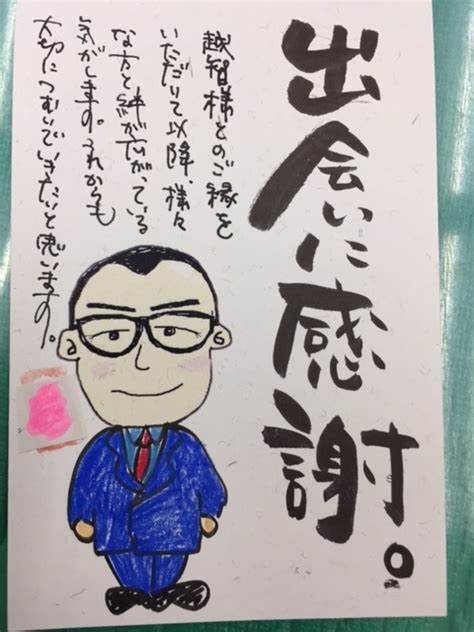 出会いに感謝。
越智様とのご縁を
いただいて以降様々
な方と絆が広がっている
気がします。これからも
大切につむいでいきたいと思います。